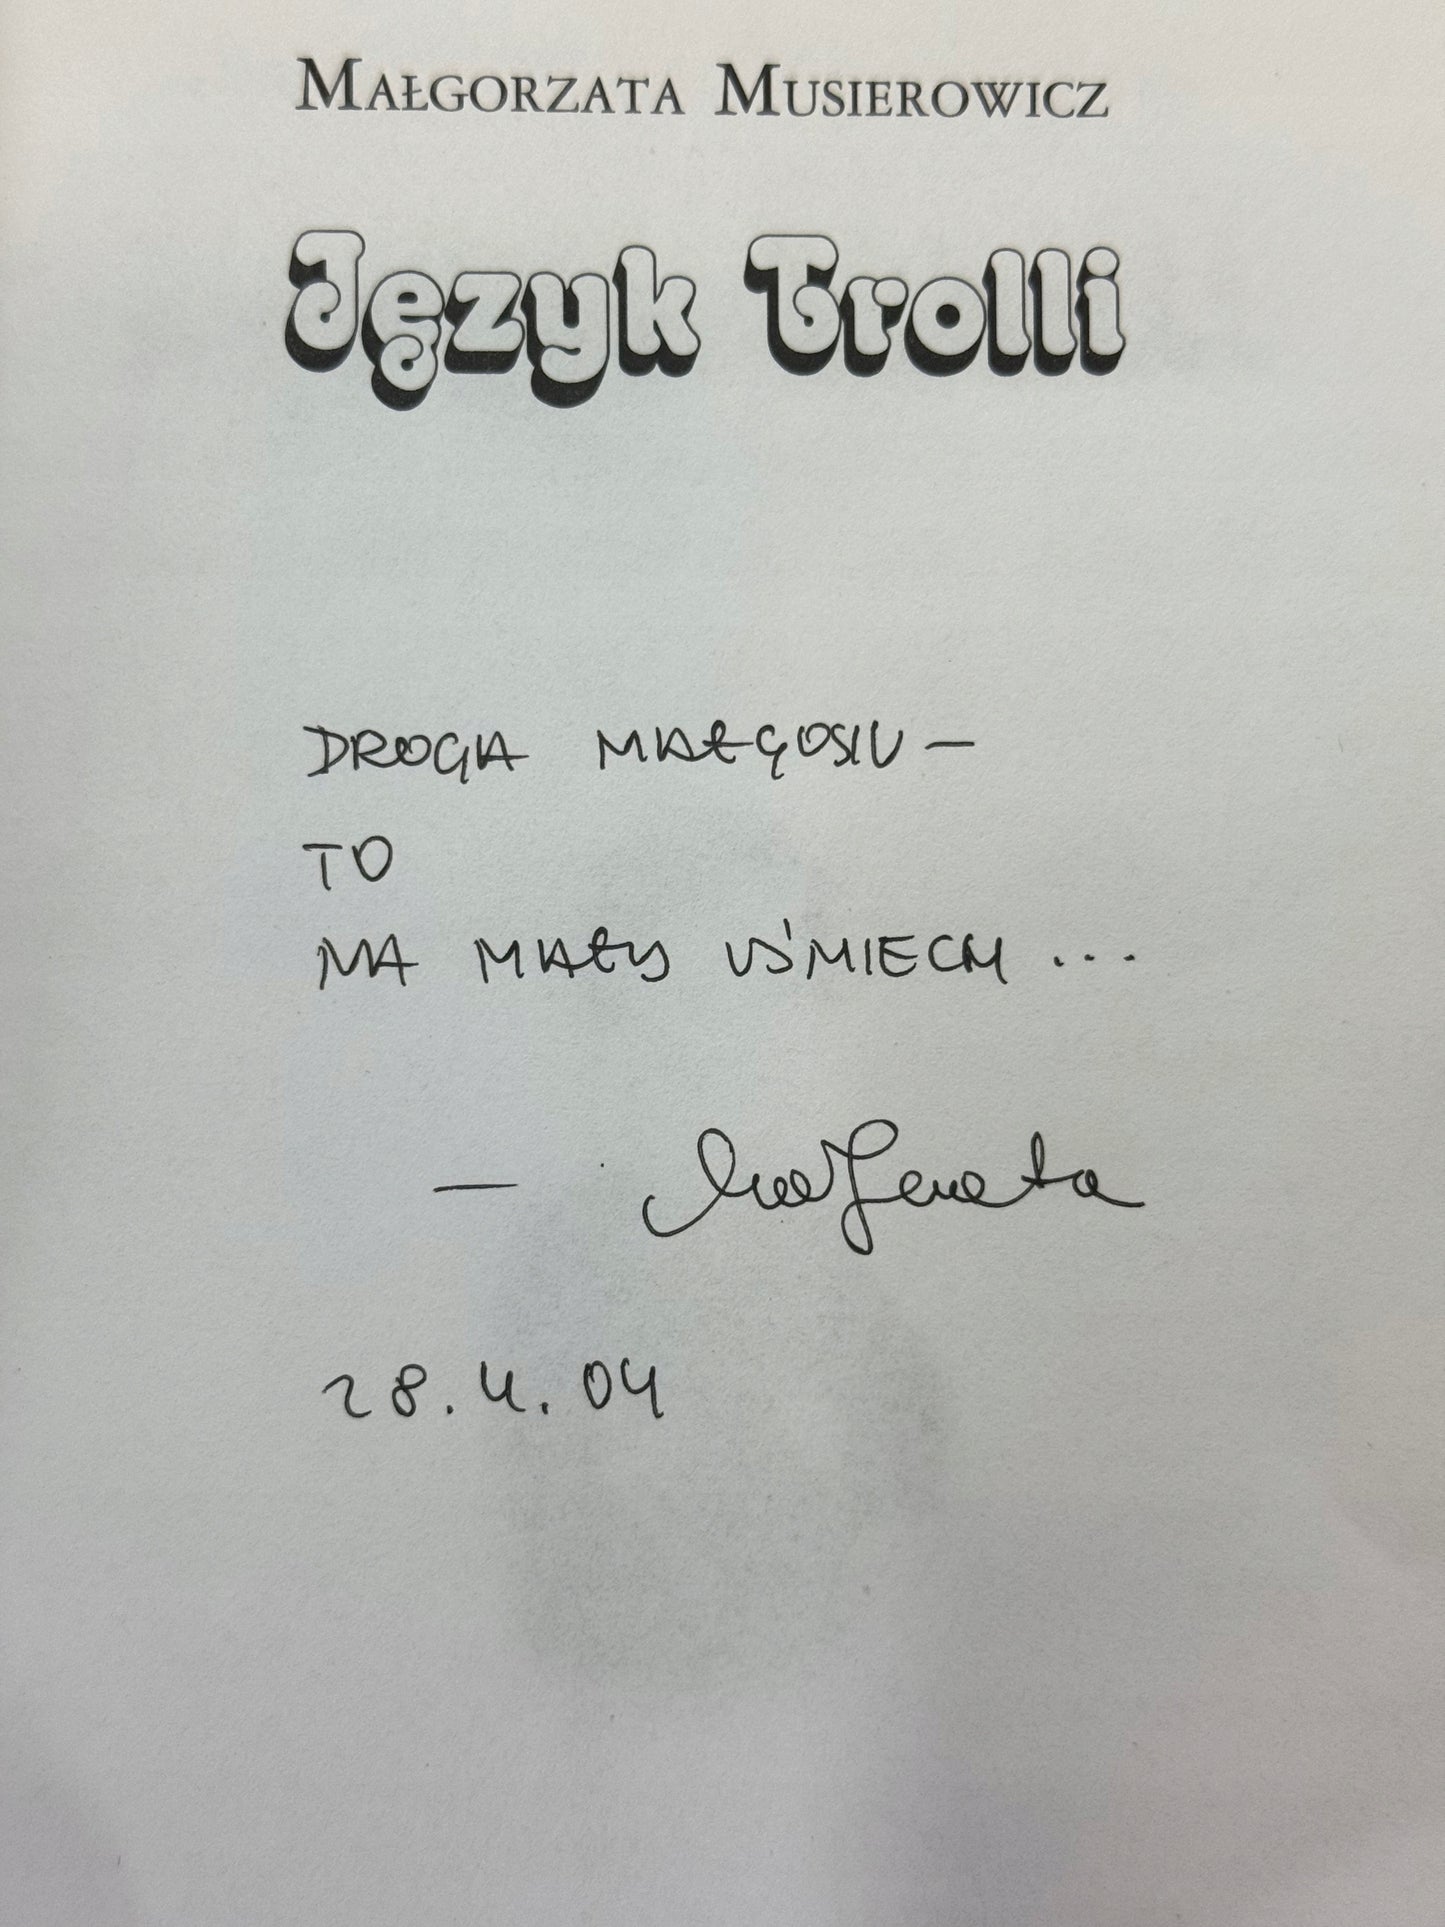 MAŁGORZATA MUSIEROWICZ
Język Trolli
DROGA MAŁGOSIU –
TO
NA MAŁY UŚMIECH ...
–
28.4.04